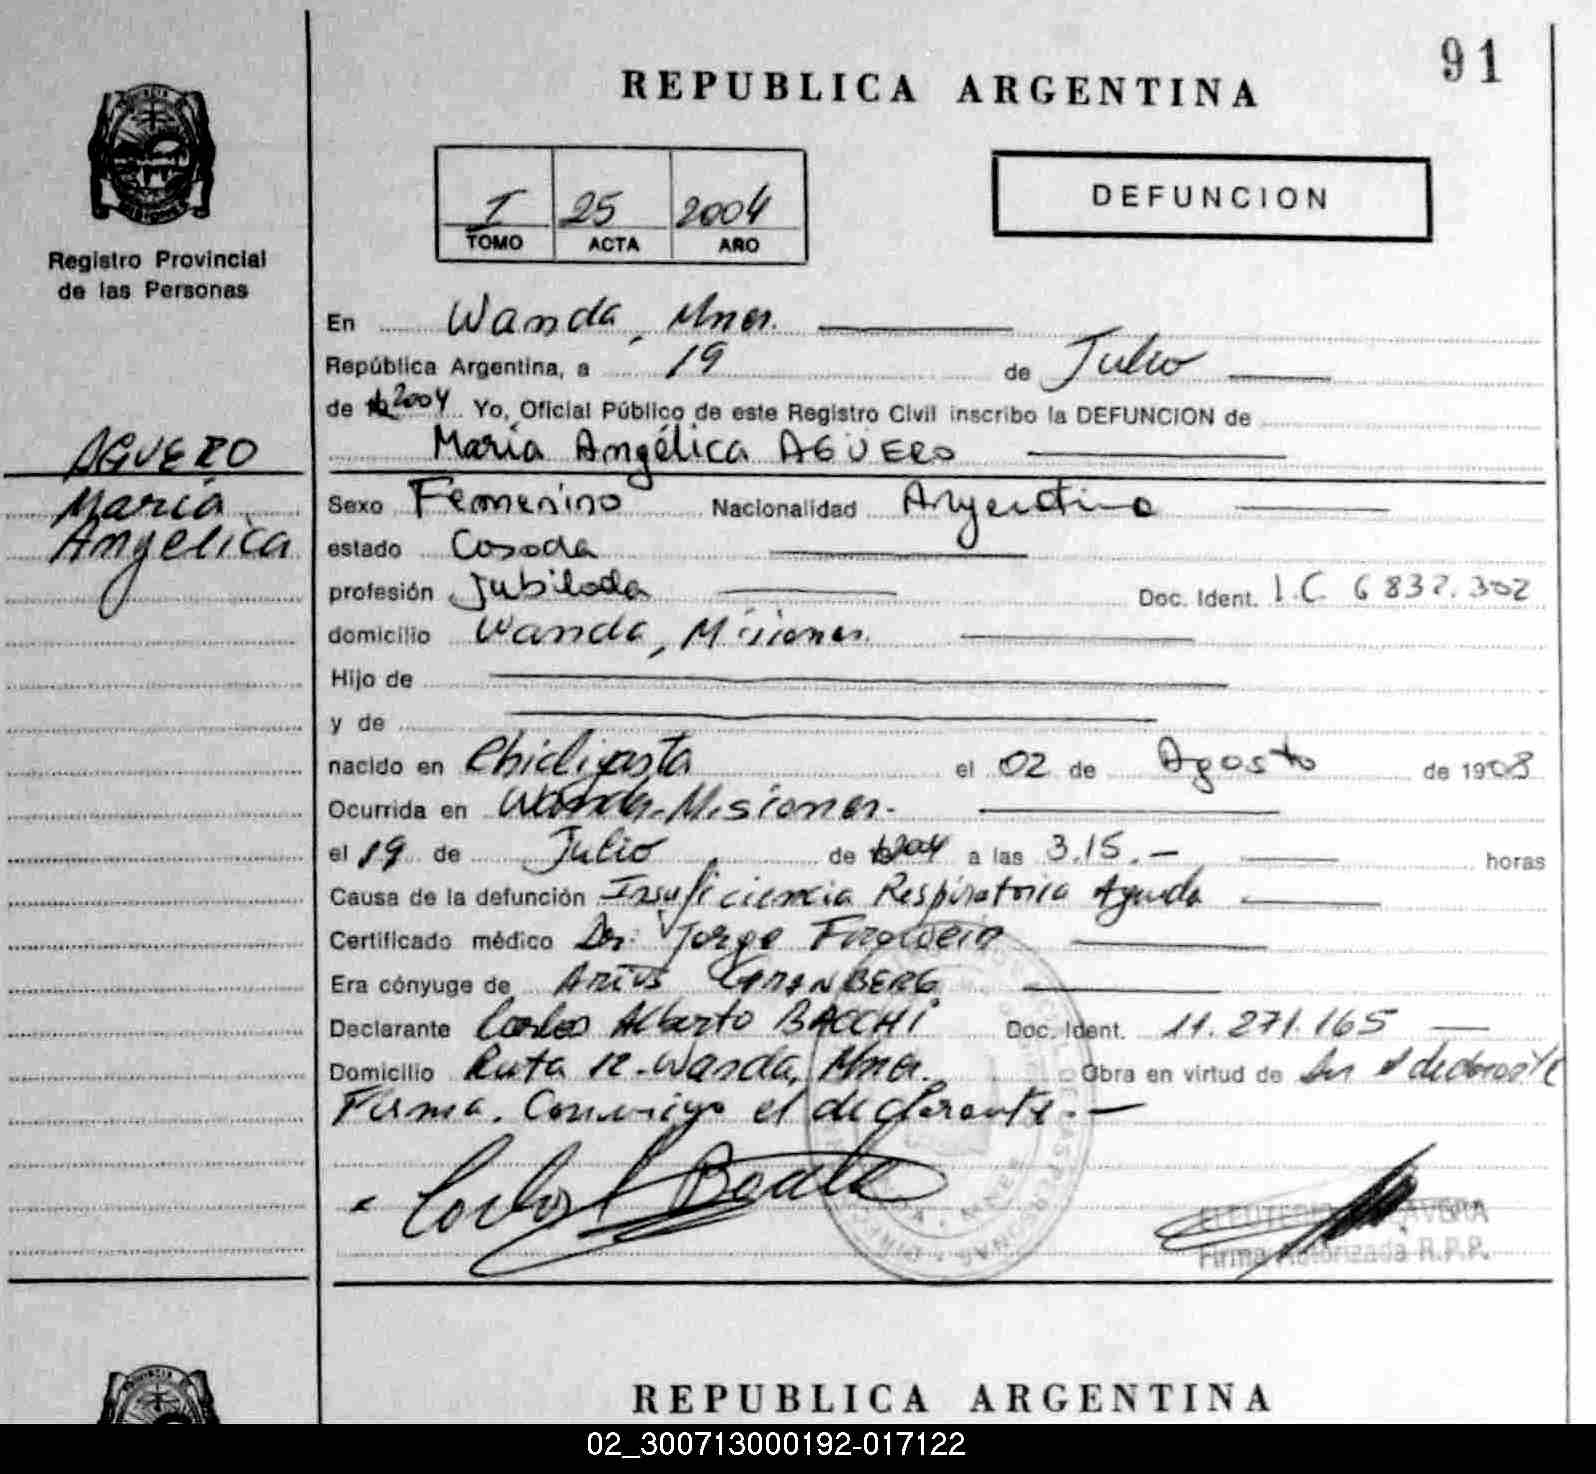 91
REPUBLICA ARGENTINA
I 25 2004
TOMO ACTA AÑO
DEFUNCION
Registro Provincial
de las Personas
AGUERO
María
Angélica
En Wanda, Mnes.
República Argentina, a 19 de Julio
de 2004 Yo, Oficial Público de este Registro Civil inscribo la DEFUNCION de
María Angélica AGÜERO
Sexo Femenino Nacionalidad Argentina
estado Casada
profesión Jubilada Doc. Ident. L.C. 6 832.302
domicilio Wanda, Misiones.
Hijo de
y de
nacido en Chicligasta el 02 de Agosto de 1908
Ocurrida en Wanda-Misiones.-
el 19 de Julio de 2004 a las 3.15.- horas
Causa de la defunción Insuficiencia Respiratoria Aguda
Certificado médico Dr. Jorge
Era cónyuge de GRANBERG
Declarante Carlos Alberto BACCHI Doc. Ident. 11.271.165
Domicilio Ruta 12-Wanda, Mnes. Obra en virtud de Ser el declarante
Firma. Conmigo el declarante.-
Firma Autorizada R.P.P.
REPUBLICA ARGENTINA
02_300713000192-017122